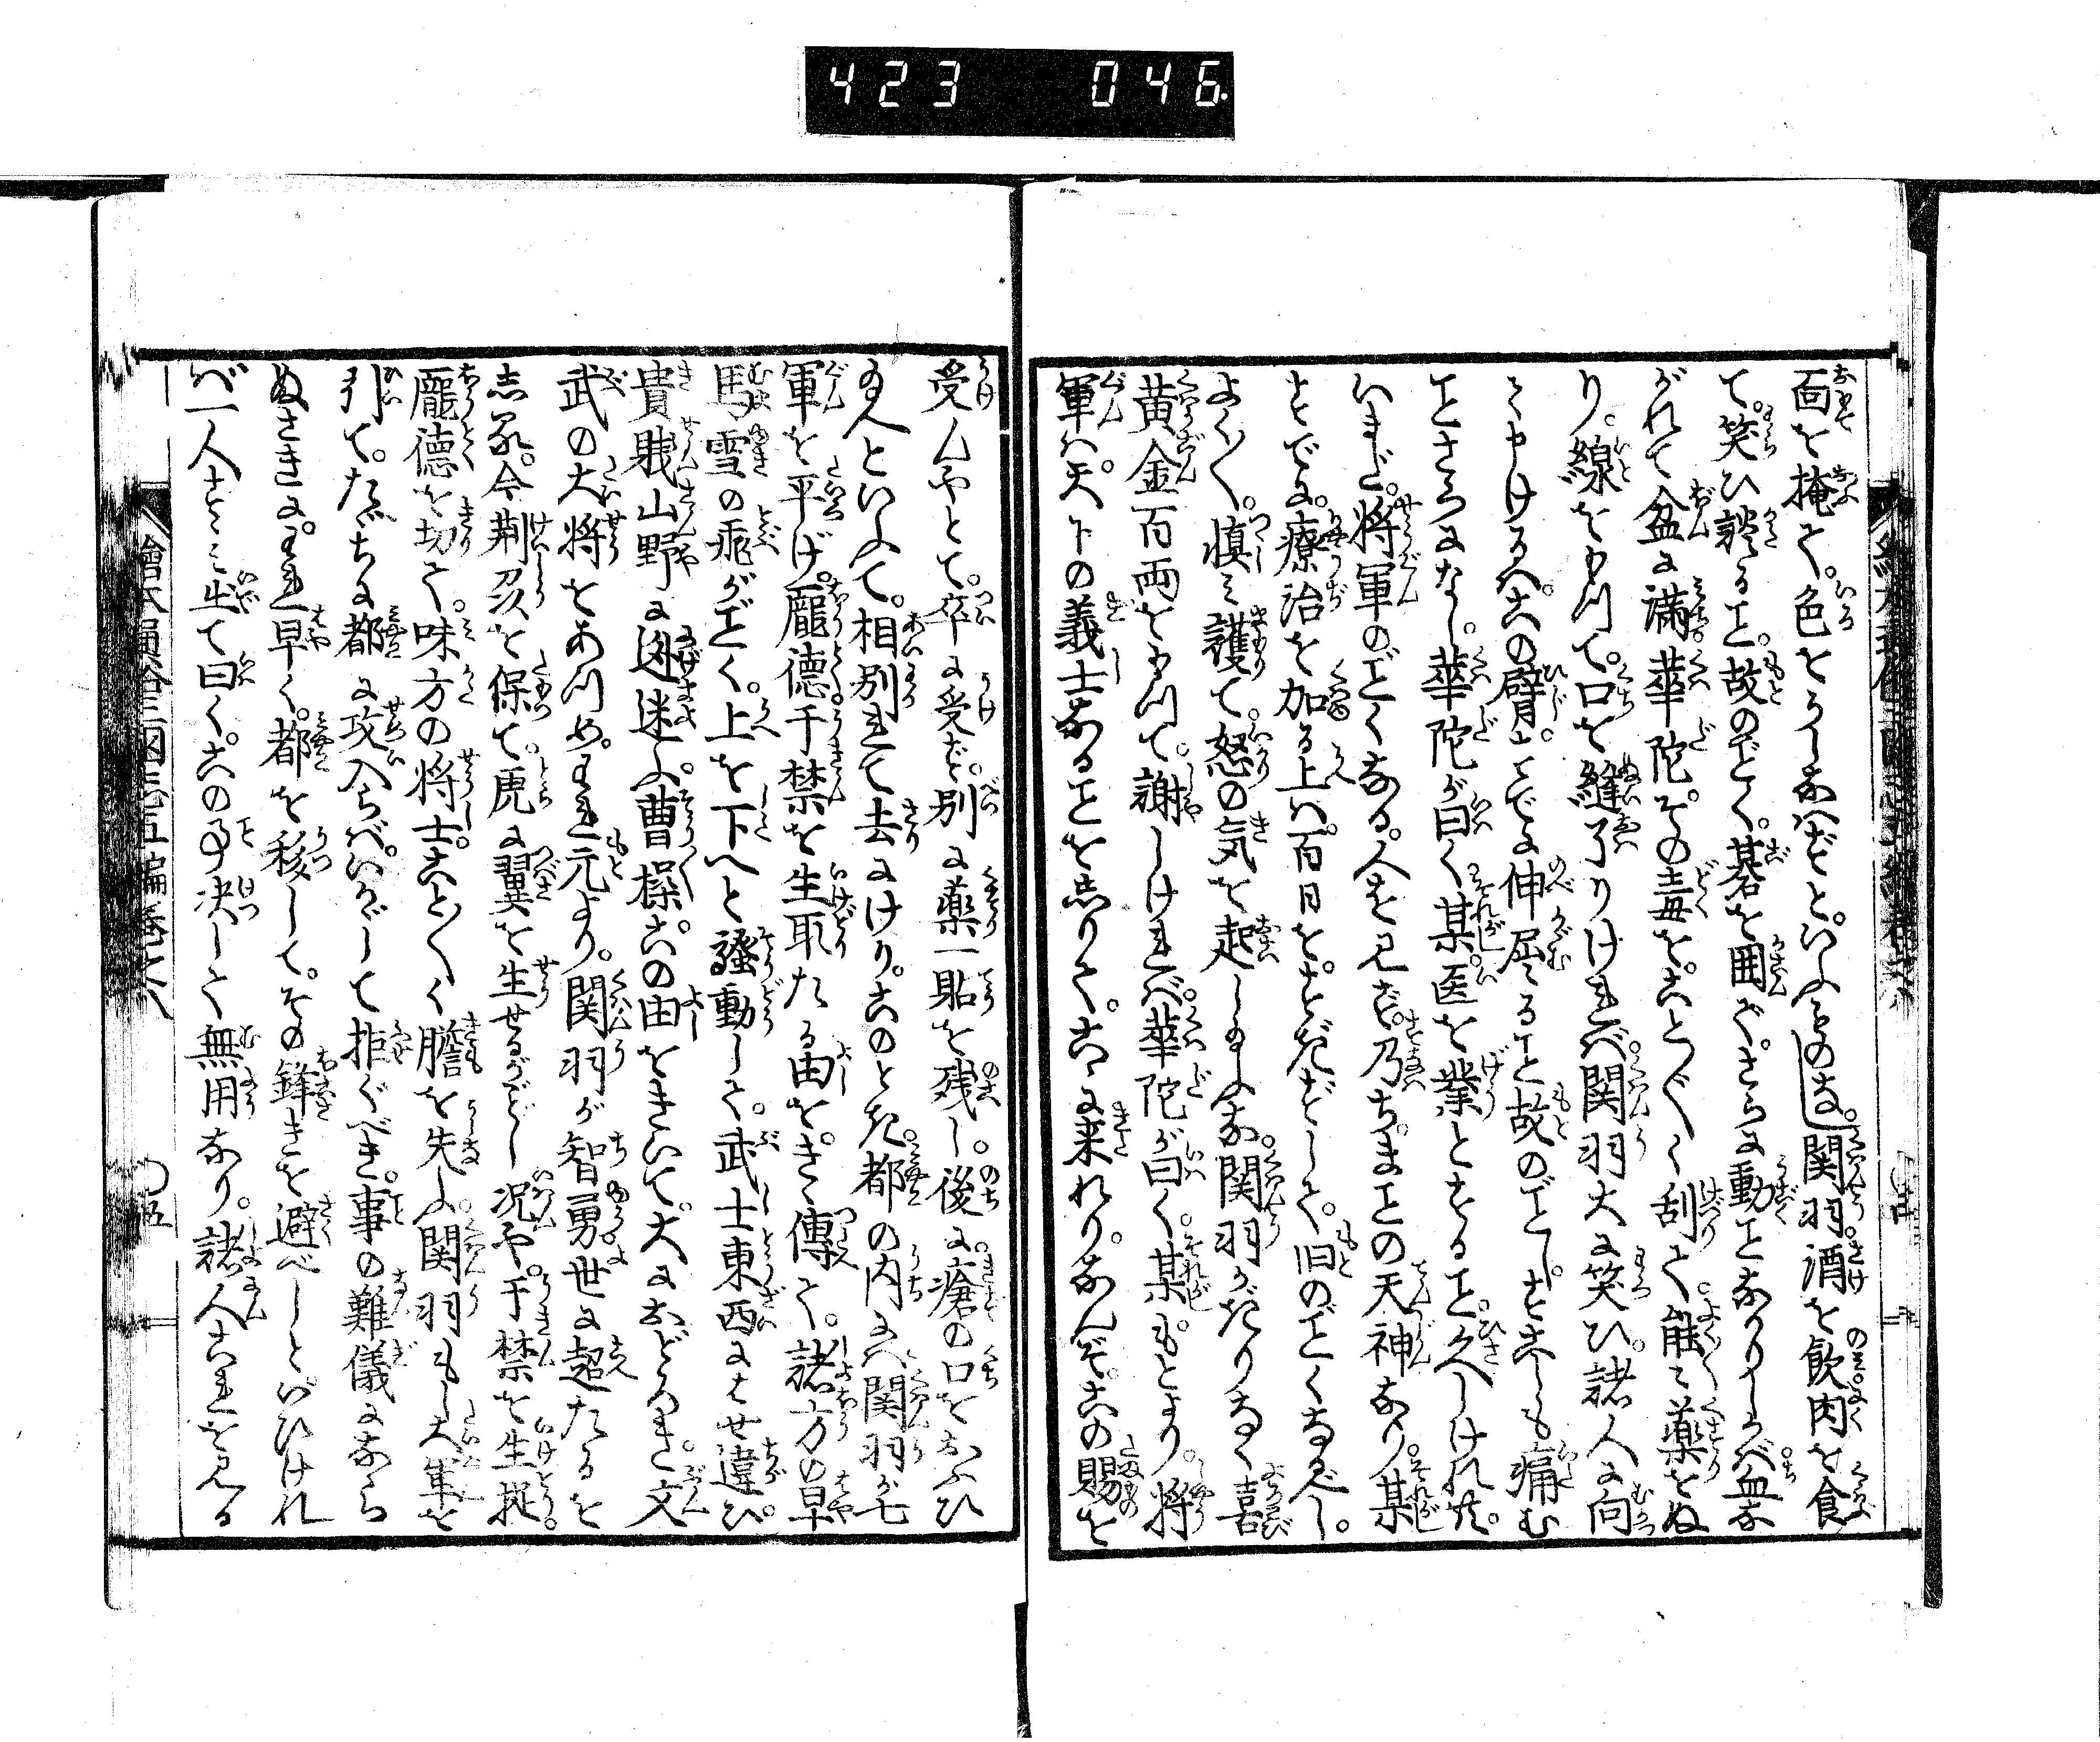 423 046.
面を掩て。色をうしなハずといふものなし。関羽。酒を飲肉を食
て。笑ひ談ること。故のごとく。碁を囲ざ。さらに動ことなかりしかバ血な
がれて盆に満。華陀。その毒をことごとく刮て。能々薬をぬ
り。線をもつて。口を縫了りけれバ。関羽大に笑ひ。諸人に向
ミ申けるハ。この臂すでに伸屈ること故のごとし。すこしも痛む
ことさらになし。華陀が曰く。某医を業とすること。久しけれ共。
いまだ。将軍のごとくなる。人を見ず。乃ちまことの天神なり。某
すでに。療治を加る上ハ。百日をすぎずして。旧のごとくなるべし。
よくよく。慎ミ護て。怒の気を起し給ふな。関羽がぎりなく喜
黄金百両をもつて。謝しけれバ。華陀が曰く。某もとより。将
軍ハ。天下の義士なることを知りて。こゝに来れり。なんぞ。この賜を
受んやとて。卒に受ず。別に薬一貼を残し。後に瘡の口をおふひ
給へといふて。相別れて去にけり。このとき。都の内にハ関羽が七
軍を平げ。龐徳于禁を生取たる由を。きゝ傳て。諸方の早
馬雪の飛がごとく。上を下へと騒動して。武士東西にはせ違ひ。
貴賎山野に逃迷ふ。曹操。この由をきいて。大におどろき。文
武の大将をあつめ。われ元より。関羽が智勇世に超たるを
志る。今荊州を保て。虎に翼を生せるがごとし況や。于禁を生捉。
龐徳を切て。味方の将士。ことごとく膽を失ふ。関羽もし大軍を
引て。たゞちに都に攻入らバ。いかゞして拒ぐべき。事の難儀になら
ぬさきに。われ早く。都を移して。その鋒きを避べしと。いひけれ
バ一人すゝミ出て曰く。この事決して無用なり。諸人これを見る
繪本通俗三国志五編巻之八
五